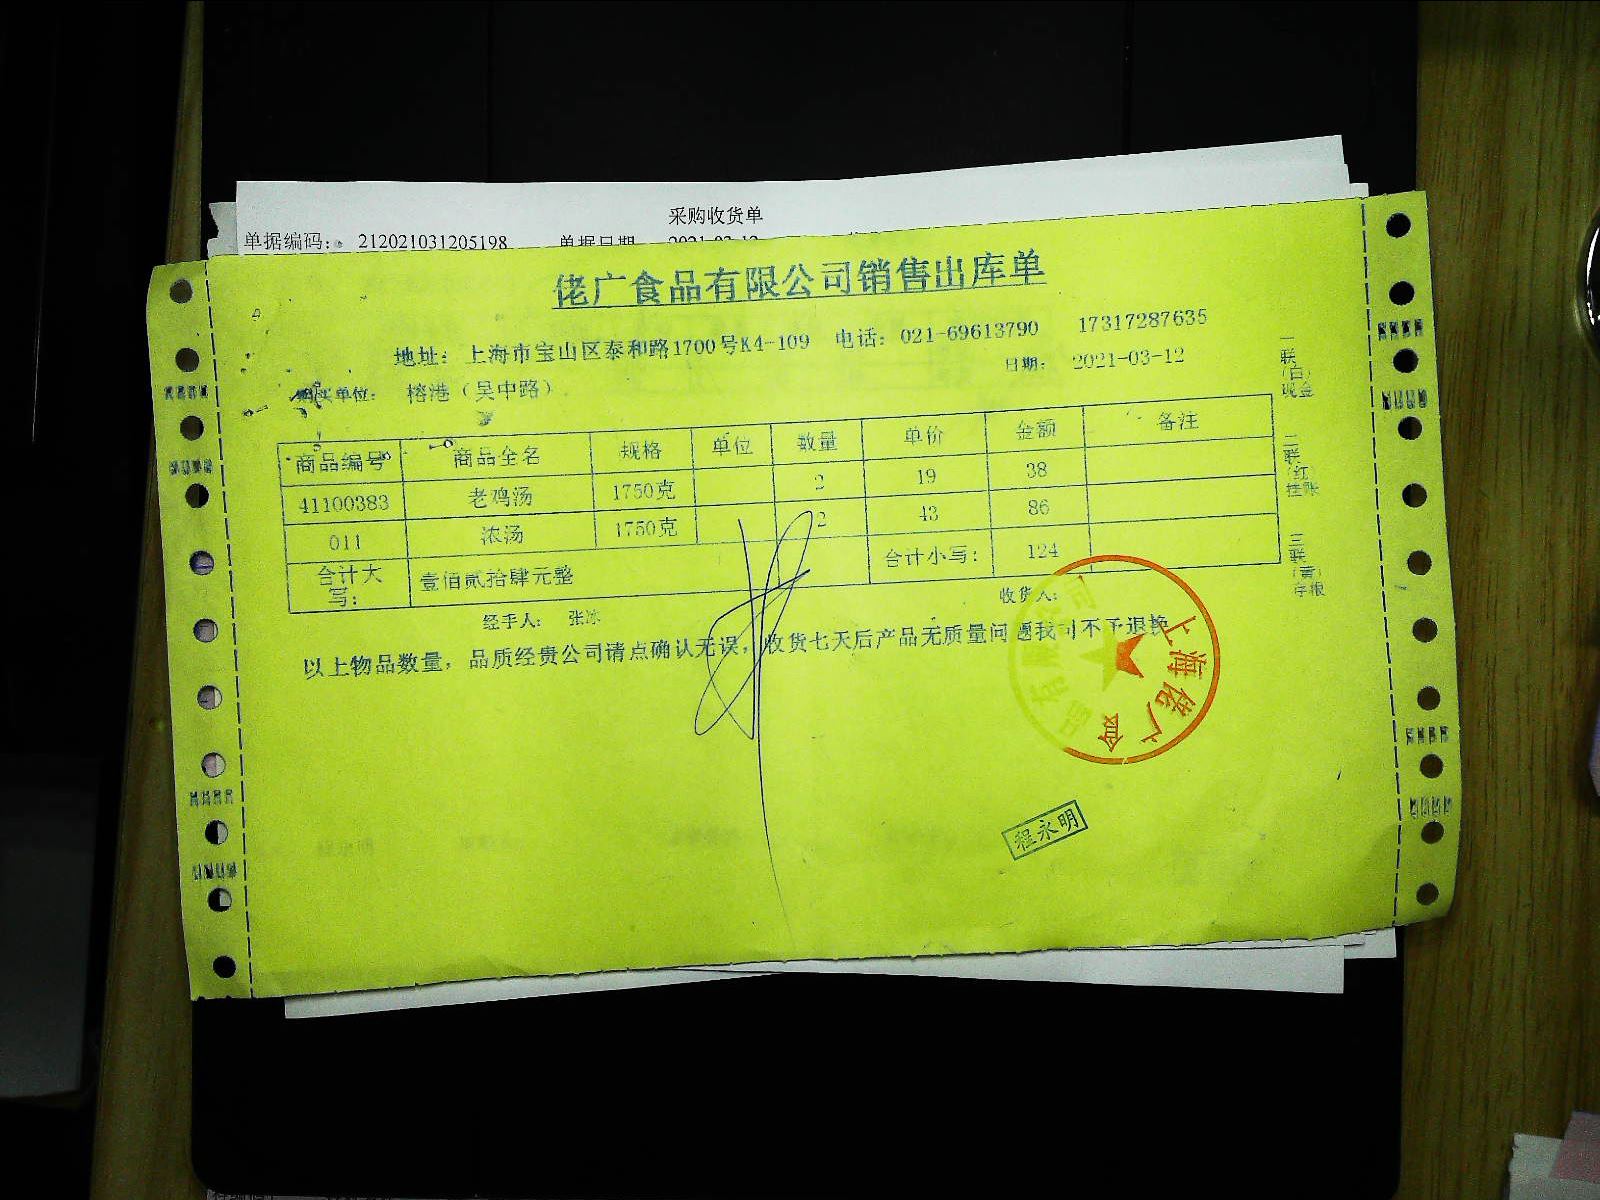 采购收货单
单据编码： 212021031205198 单据日期 2021-03-12
佬广食品有限公司销售出库单
地址：上海市宝山区泰和路1700号K4-109 电话：021-69613790 17317287635
日期： 2021-03-12
购买单位： 榕港（吴中路）
商品编号 商品全名 规格 单位 数量 单价 金额 备注
41100383 老鸡汤 1750克 2 19 38
011 浓汤 1750克 2 43 86
合计大写： 壹佰贰拾肆元整 合计小写： 124
经手人： 张冰 收货人：
以上物品数量，品质经贵公司请点确认无误，收货七天后产品无质量问题我司不予退换
一联（白）现金
二联（红）挂账
三联（黄）存根
上海佬广食品有限公司
程永明